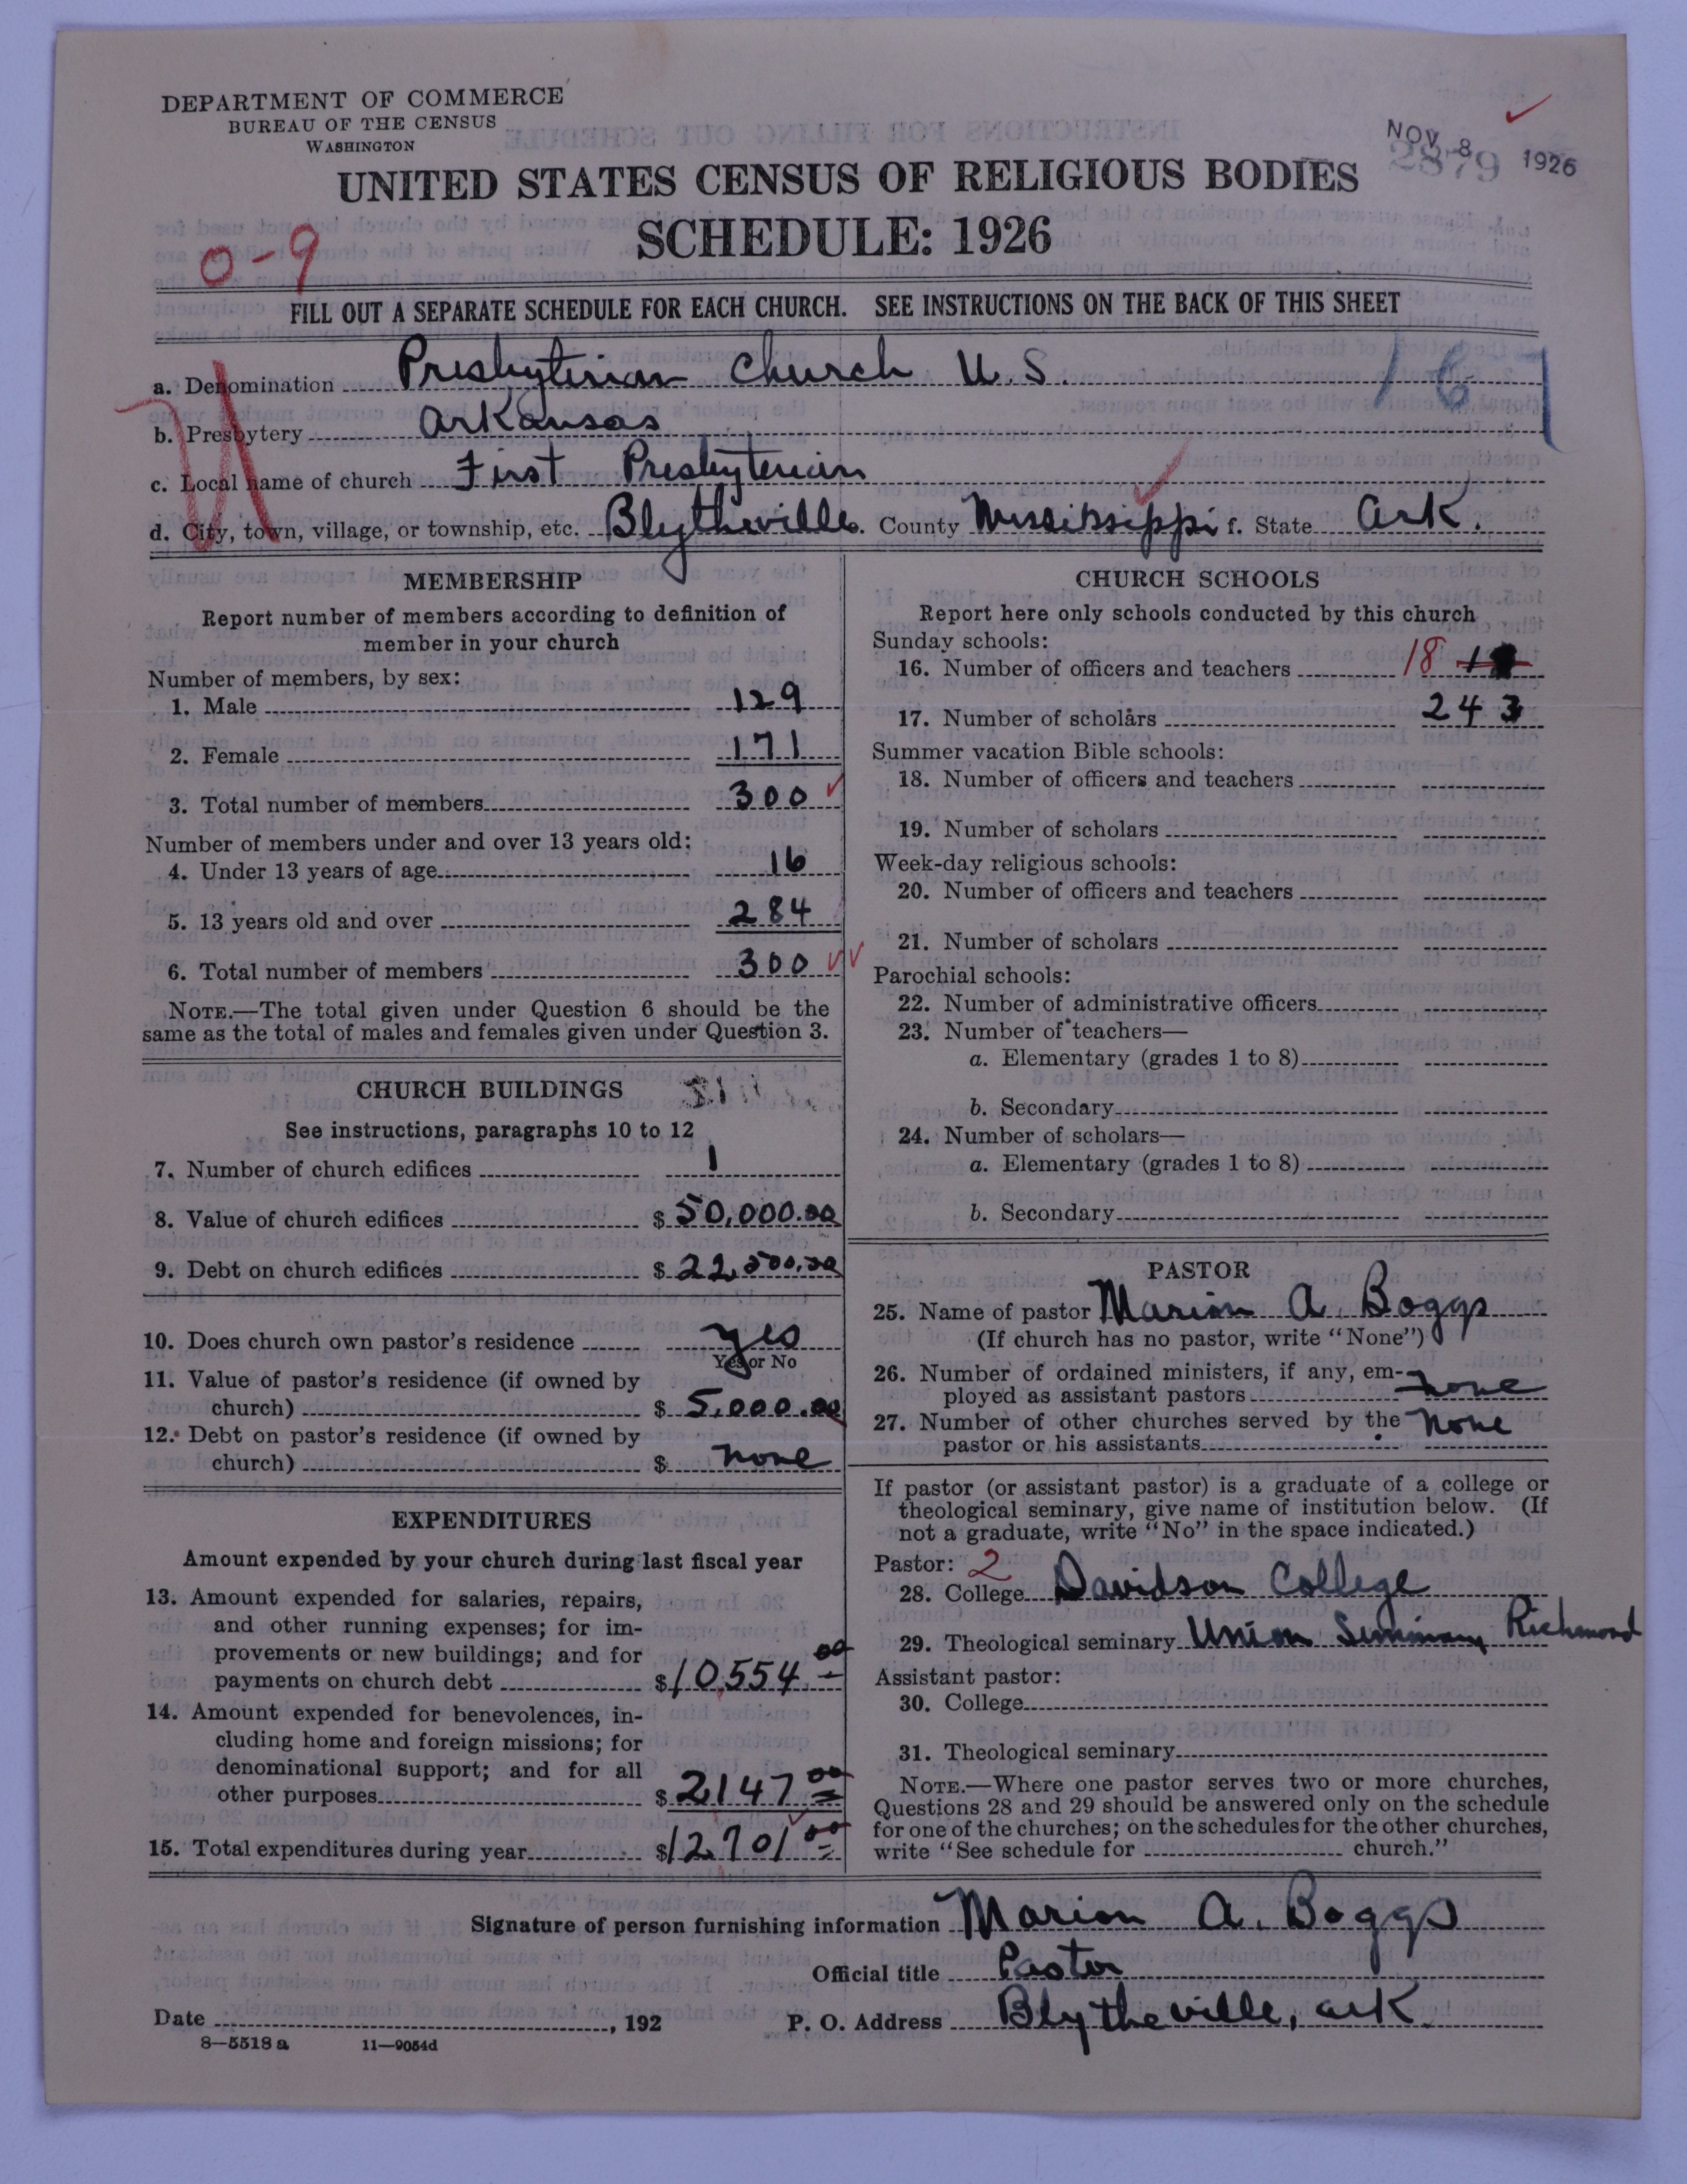 DEPARTMENT OF COMMERCE
BUREAU OF THE CENSUS
WASHINGTON
NOV -8 1926
2879
UNITED STATES CENSUS OF RELIGIOUS BODIES
SCHEDULE: 1926
0-9
FILL OUT A SEPARATE SCHEDULE FOR EACH CHURCH. SEE INSTRUCTIONS ON THE BACK OF THIS SHEET
a. Denomination Presbyterian Church U.S. 167
b. Presbytery Arkansas
c. Local name of church First Presbyterian
d. City, town, village, or township, etc. Blytheville e. County Mississippi f. State Ark.
MEMBERSHIP
Report number of members according to definition of
member in your church
Number of members, by sex:
1. Male 129
2. Female 171
3. Total number of members 300
Number of members under and over 13 years old:
4. Under 13 years of age 16
5. 13 years old and over 284
6. Total number of members 300
NOTE.—The total given under Question 6 should be the
same as the total of males and females given under Question 3.
CHURCH BUILDINGS
See instructions, paragraphs 10 to 12
7. Number of church edifices 1
8. Value of church edifices $ 50,000.00
9. Debt on church edifices $ 22,500.00
10. Does church own pastor's residence yes
Yes or No
11. Value of pastor's residence (if owned by
church) $ 5,000.00
12. Debt on pastor's residence (if owned by
church) $ none
EXPENDITURES
Amount expended by your church during last fiscal year
13. Amount expended for salaries, repairs,
and other running expenses; for im-
provements or new buildings; and for
payments on church debt $ 10,554 00
14. Amount expended for benevolences, in-
cluding home and foreign missions; for
denominational support; and for all
other purposes $ 2147 00
15. Total expenditures during year $ 12701 00
CHURCH SCHOOLS
Report here only schools conducted by this church
Sunday schools:
16. Number of officers and teachers 18
17. Number of scholars 243
Summer vacation Bible schools:
18. Number of officers and teachers
19. Number of scholars
Week-day religious schools:
20. Number of officers and teachers
21. Number of scholars
Parochial schools:
22. Number of administrative officers
23. Number of teachers—
a. Elementary (grades 1 to 8)
b. Secondary
24. Number of scholars—
a. Elementary (grades 1 to 8)
b. Secondary
PASTOR
25. Name of pastor Marion A. Boggs
(If church has no pastor, write "None")
26. Number of ordained ministers, if any, em-
ployed as assistant pastors none
27. Number of other churches served by the
pastor or his assistants none
If pastor (or assistant pastor) is a graduate of a college or
theological seminary, give name of institution below. (If
not a graduate, write "No" in the space indicated.)
Pastor: 2
28. College Davidson College
29. Theological seminary Union Seminary Richmond
Assistant pastor:
30. College
31. Theological seminary
NOTE.—Where one pastor serves two or more churches,
Questions 28 and 29 should be answered only on the schedule
for one of the churches; on the schedules for the other churches,
write "See schedule for church."
Signature of person furnishing information Marion A. Boggs
Official title Pastor
Date , 192 P. O. Address Blytheville, Ark.
8—5518 a 11—9054d